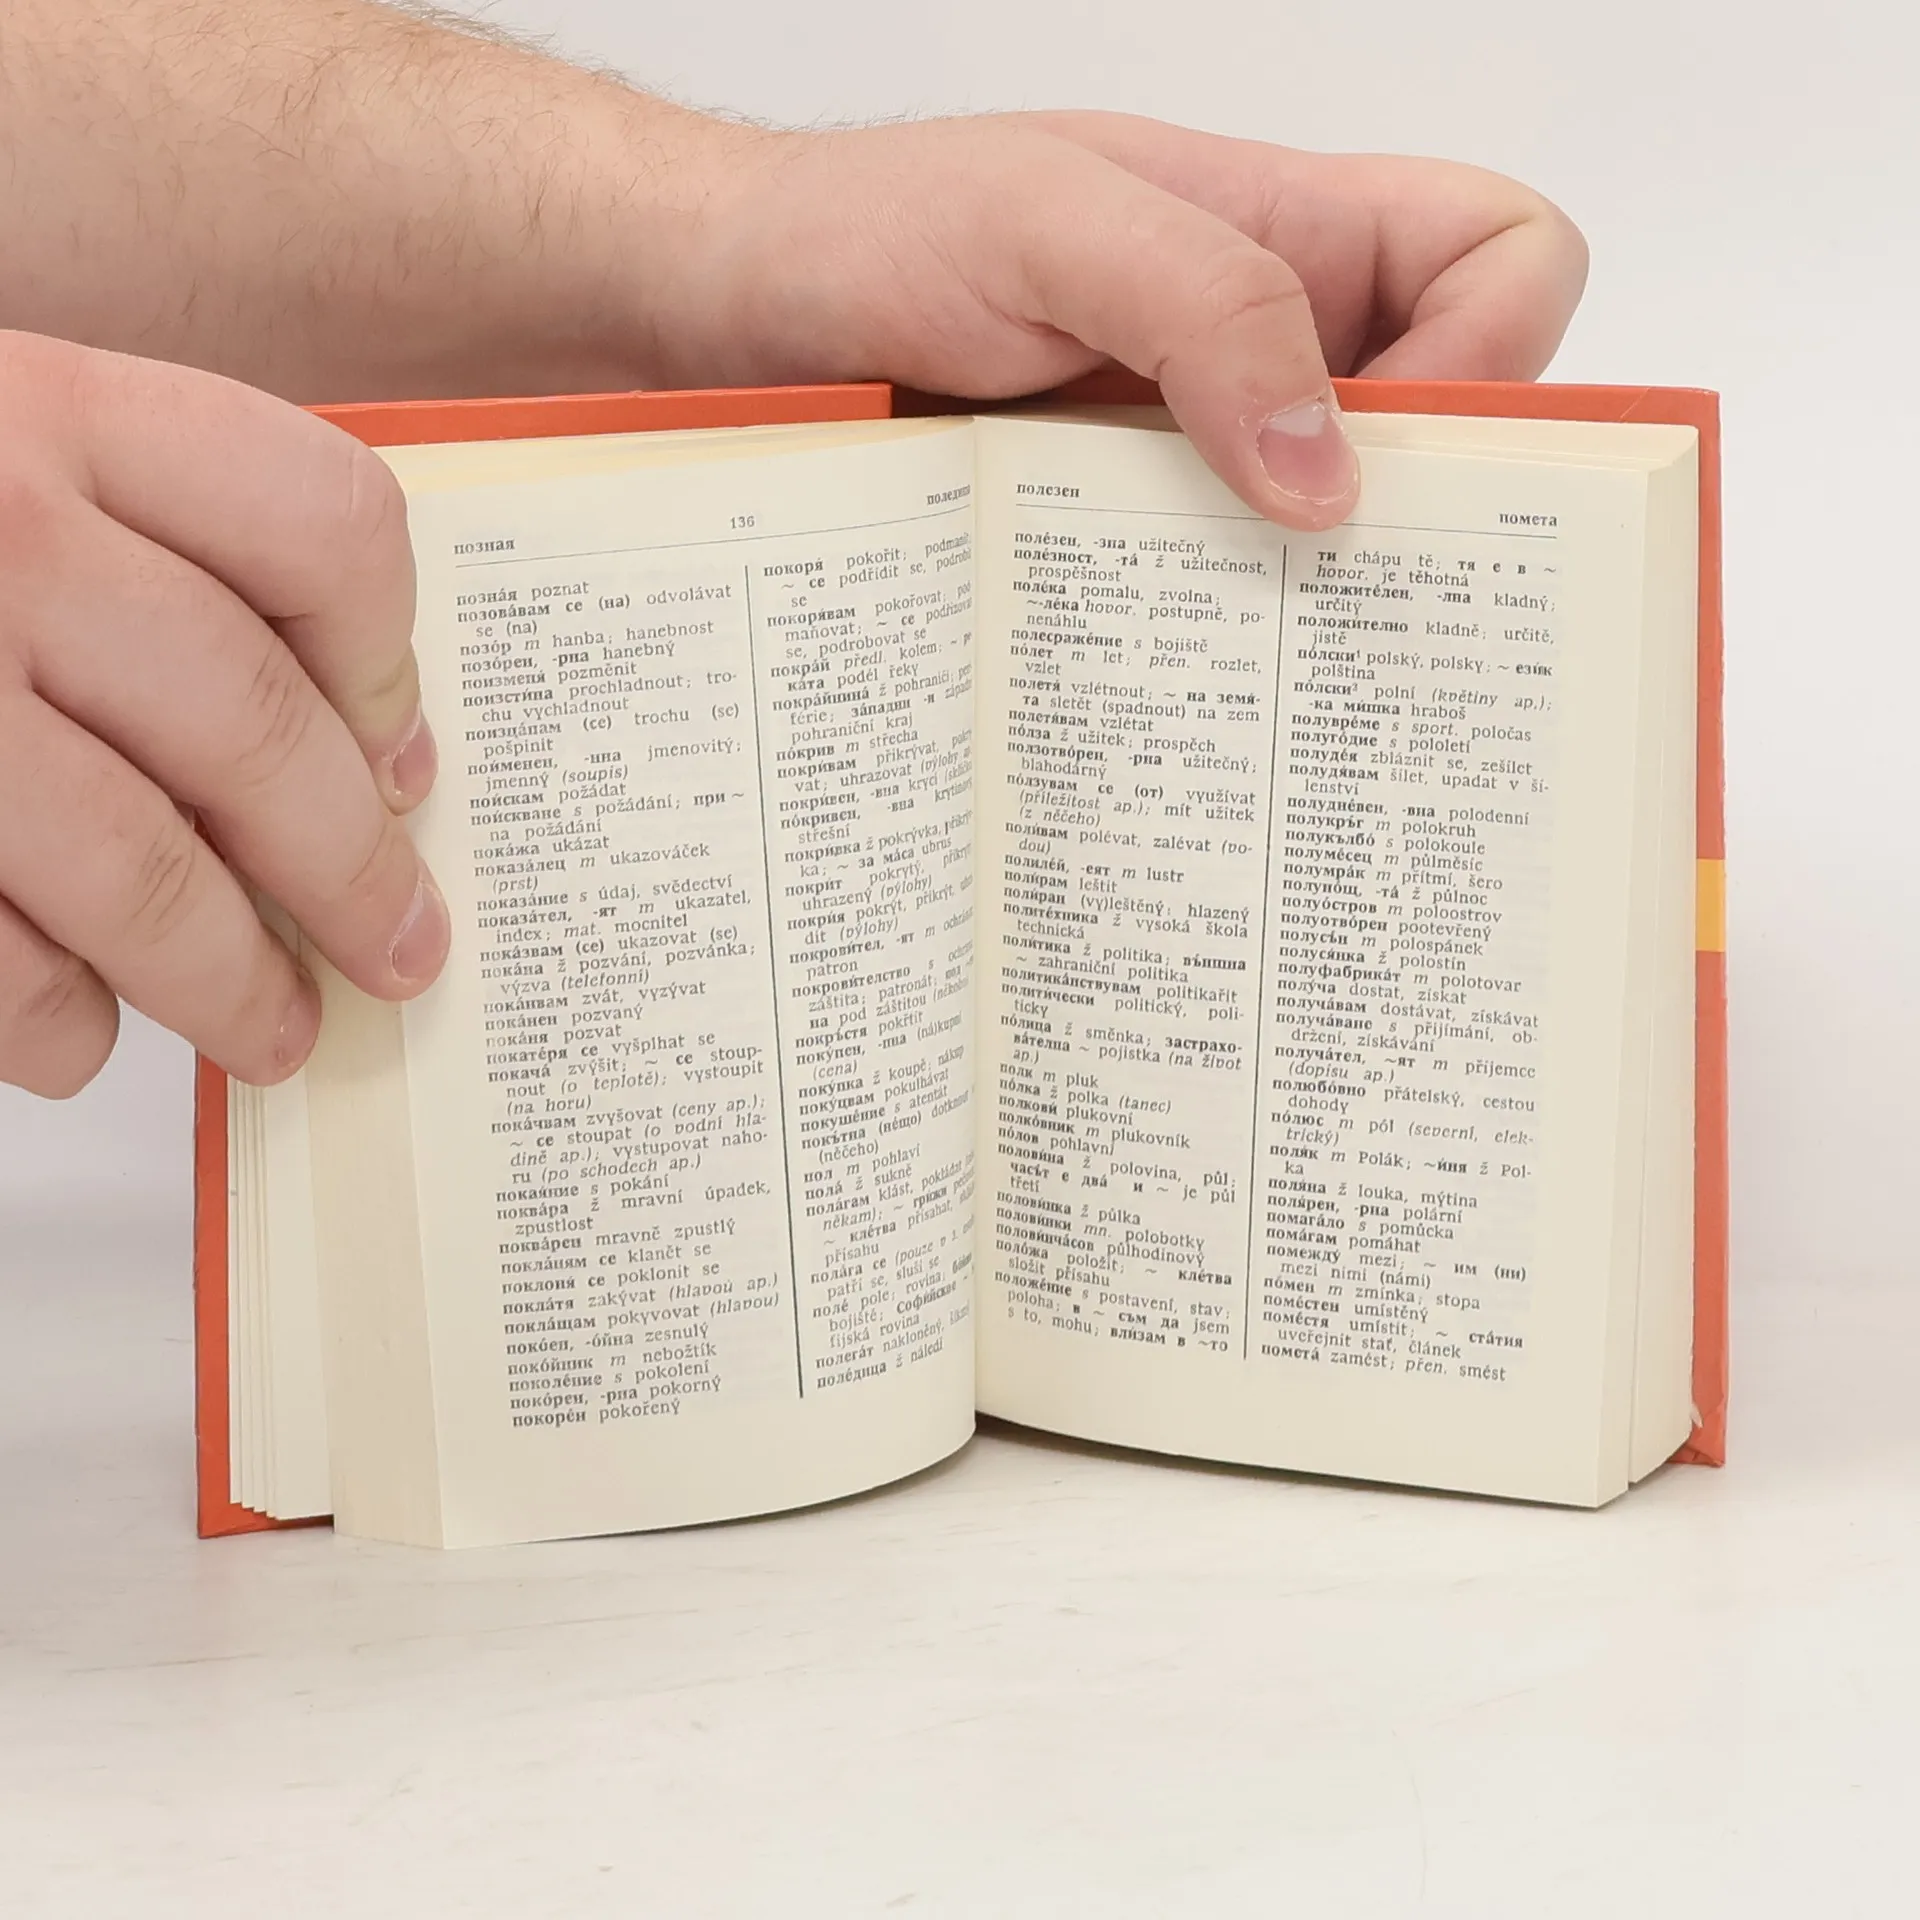 позная
136
позна́я poznat
позова́вам се (на) odvolávat
se (na)
позо́р m hanba; hanebnost
позо́рен, -рна hanebný
поизменя́ pozměnit
поизсти́на prochladnout; tro-
chu vychladnout
поизца́пам (се) trochu (se)
pošpinit
пои́менен, -нна jmenovitý;
jmenný (soupis)
пои́скам požádat
пои́скване s požádání; при ~
na požádání
пока́жа ukázat
показа́лец m ukazováček
(prst)
показа́ние s údaj, svědectví
показа́тел, -ят m ukazatel,
index; mat. mocnitel
пока́звам (се) ukazovat (se)
пока́на ž pozvání, pozvánka;
výzva (telefonní)
пока́нвам zvát, vyzývat
пока́нен pozvaný
пока́ня pozvat
покате́ря се vyšplhat se
покача́ zvýšit; ~ се stoup-
nout (o teplotě); vystoupit
(na horu)
пока́чвам zvyšovat (ceny ap.);
~ се stoupat (o vodní hla-
dině ap.); vystupovat naho-
ru (po schodech ap.)
покая́ние s pokání
поква́ра ž mravní úpadek,
zpustlost
поква́рен mravně zpustlý
покла́ням се klanět se
поклоня́ се poklonit se
покла́тя zakývat (hlavou ap.)
покла́щам pokyvovat (hlavou)
поко́ен, -о́йна zesnulý
поко́йник m nebožtík
поколе́ние s pokolení
поко́рен, -рна pokorný
покоре́н pokořený
покоря́ pokořit;
~ се podřídit se,
se
покоря́вам pokořovat;
maňovat; ~ се
se, podrobovat se
покра́й předl. kolem; ~
ка́та podél řeky
покра́йнина́ ž pohraničí;
férie; за́падни -и
pohraniční kraj
по́крив m střecha
покри́вам přikrývat,
vat; uhrazovat (výlohy
покри́вен, -вна krycí
по́кривен, -вна
střešní
покри́вка ž pokrývka,
ka; ~ за ма́са ubrus
покри́т pokrytý,
uhrazený (výlohy)
покри́я pokrýt, přikrýt,
dit (výlohy)
покрови́тел, -ят m
patron
покрови́телство s
záštita; patronát;
на pod záštitou
покръ́стя pokřtít
поку́пен, -пна (ná)kupní
(cena)
поку́пка ž koupě; nákup
поку́цвам pokulhávat
покуше́ние s atentát
покъ́тна (не́що)
(něčeho)
пол m pohlaví
пола́ ž sukně
пола́гам klást, pokládat
někam); ~ гри́жи
~ кле́тва přísahat,
přísahu
пола́га се (pouze v 3.
patří se, sluší se
поле́ pole; rovina;
bojiště; Софи́йское ~
fijská rovina
полега́т nakloněný,
поле́дица ž náledí
полезен
помета
поле́зен, -зна užitečný
поле́зност, -та́ ž užitečnost,
prospěšnost
поле́ка pomalu, zvolna;
~-ле́ка hovor. postupně, po-
nenáhlu
полесраже́ние s bojiště
по́лет m let; přen. rozlet,
vzlet
полетя́ vzlétnout; ~ на земя́-
та sletět (spadnout) na zem
полетя́вам vzlétat
по́лза ž užitek; prospěch
ползотво́рен, -рна užitečný;
blahodárný
по́лзувам се (от) využívat
(příležitost ap.); mít užitek
(z něčeho)
поли́вам polévat, zalévat (vo-
dou)
полиле́й, -еят m lustr
поли́рам leštit
поли́ран (vy)leštěný; hlazený
полите́хника ž vysoká škola
technická
поли́тика ž politika; въ́ншна
~ zahraniční politika
политика́нствувам politikařit
полити́чески politický, poli-
ticky
по́лица ž směnka; застрахо-
ва́телна ~ pojistka (na život
ap.)
полк m pluk
по́лка ž polka (tanec)
полкови́ plukovní
полко́вник m plukovník
по́лов pohlavní
полови́на ž polovina, půl;
часъ́т е два́ и ~ je půl
třetí
полови́нка ž půlka
полови́нки mn. polobotky
полови́нчасов půlhodinový
поло́жа položit; ~ кле́тва
složit přísahu
положе́ние s postavení, stav;
poloha; в ~ съм да jsem
s to, mohu; вли́зам в ~то
ти chápu tě; тя е в ~
hovor. je těhotná
положи́телен, -лна kladný;
určitý
положи́телно kladně; určitě,
jistě
по́лски¹ polský, polsky; ~ ези́к
polština
по́лски² polní (květiny ap.);
-ка ми́шка hraboš
полувре́ме s sport. poločas
полуго́дие s pololetí
полуде́я zbláznit se, zešílet
полудя́вам šílet, upadat v ší-
lenství
полудне́вен, -вна polodenní
полукръ́г m polokruh
полукълбо́ s polokoule
полуме́сец m půlměsíc
полумра́к m přítmí, šero
полуно́щ, -та́ ž půlnoc
полуо́стров m poloostrov
полуотво́рен pootevřený
полусъ́н m polospánek
полуся́нка ž polostín
полуфабрика́т m polotovar
полу́ча dostat, získat
получа́вам dostávat, získávat
получа́ване s přijímání, ob-
držení, získávání
получа́тел, ~ят m příjemce
(dopisu ap.)
полюбо́вно přátelsky, cestou
dohody
по́люс m pól (severní, elek-
trický)
поля́к m Polák; ~и́ня ž Pol-
ka
поля́на ž louka, mýtina
поля́рен, -рна polární
помага́ло s pomůcka
пома́гам pomáhat
помежду́ mezi; ~ им (ни)
mezi nimi (námi)
по́мен m zmínka; stopa
поме́стен umístěný
поме́стя umístit; ~ ста́тия
uveřejnit stať, článek
помета́ zamést; přen. smést